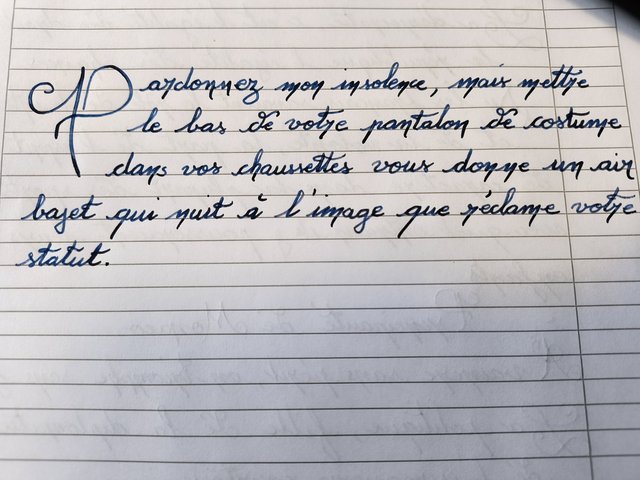 Pardonnez mon insolence, mais mettre
le bas de votre pantalon de costume
dans vos chaussettes vous donne un air
bajet qui nuit à l'image que réclame votre
statut.